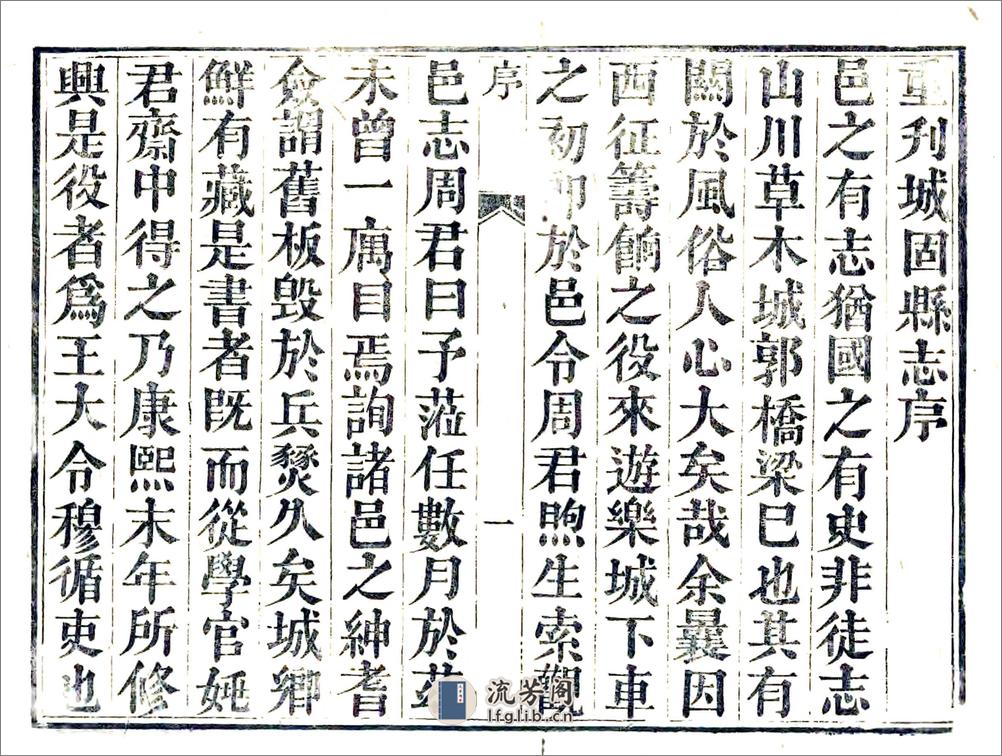 重刋城固縣志序
邑之有志猶國之有史非徒志
山川草木城郭橋梁已也其有
關於風俗人心大矣哉余曩因
西征籌餉之役來遊樂城下車
之初卽於邑令周君煦生索觀
序
一
邑志周君曰予蒞任數月於茲
未曾一寓目焉詢諸邑之紳耆
僉謂舊板毁於兵燹久矣城鄉
鮮有藏是書者既而從學官
君齋中得之乃康熙末年所修
興是役者爲王大令穆循吏也
流芳阁
lfglib.cn